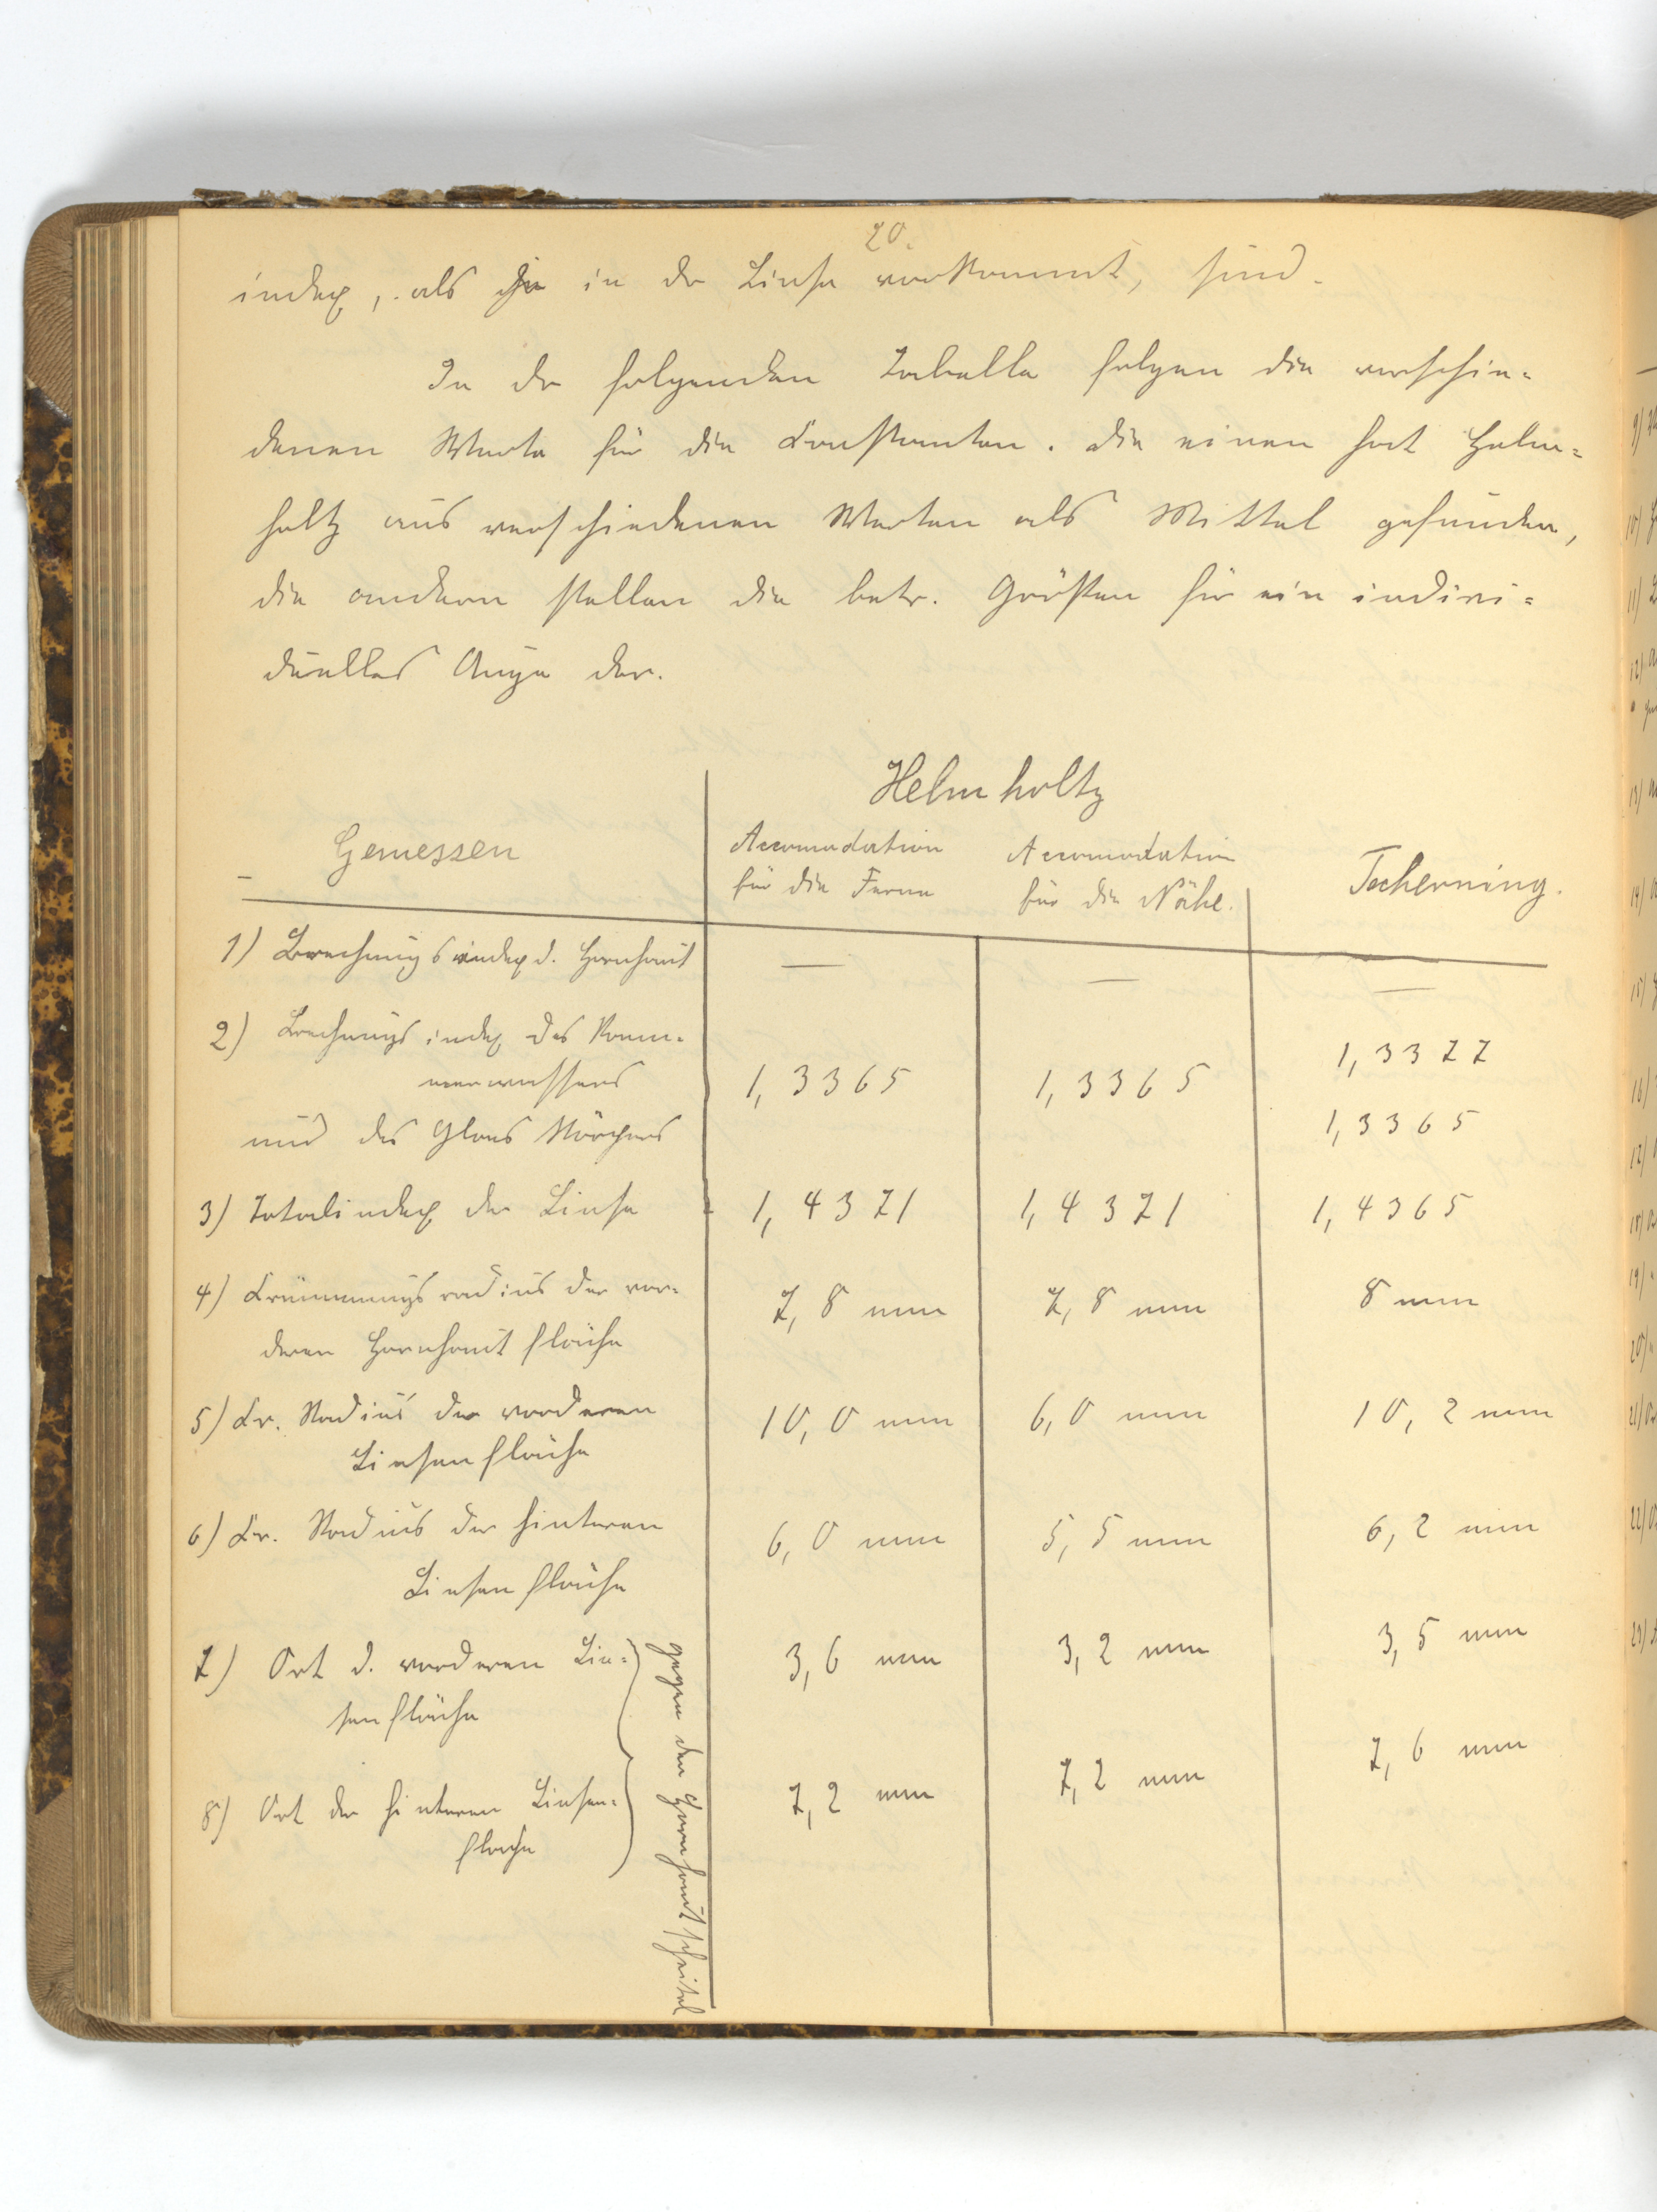 20.
index, als sie in der Linse vorkommt, sind.
In der folgenden Tabelle folgen die verschie=
denen Werte für die Constanten. Die einen hat Helm=
holtz aus verschiedenen Werten als Mittel gefunden,
die andern stellen die betr. Größen für ein indivi=
duelles Auge dar.
Helmholtz
Gemessen
Accomodation für die Ferne
Accomodation für die Nähe.
Tscherning.
1) Brechungsindex d. Hornhaut — — —
2) Brechungsindex des Kam=
merwassers 1,3365 1,3365 1,3377
und des Glaskörpers 1,3365
3) Totalindex der Linse 1,4371 1,4371 1,4365
4) Krümmungsradius der vor= 7,8 mm 7,8 mm 8 mm
deren Hornhautfläche
5) Kr. Radius der vorderen 10,0 mm 6,0 mm 10,2 mm
Linsenfläche
6) Kr. Radius der hinteren 6,0 mm 5,5 mm 6,2 mm
Linsenfläche
7) Ort d. vorderen Lin= 3,6 mm 3,2 mm 3,5 mm
senfläche
8) Ort der hinteren Linsen= 7,2 mm 7,2 mm 7,6 mm
fläche
gegen den Hornhautscheitel
9)
10)
11)
12)
13)
14)
15)
16)
17)
18)
19)
20)
21)
22)
23)